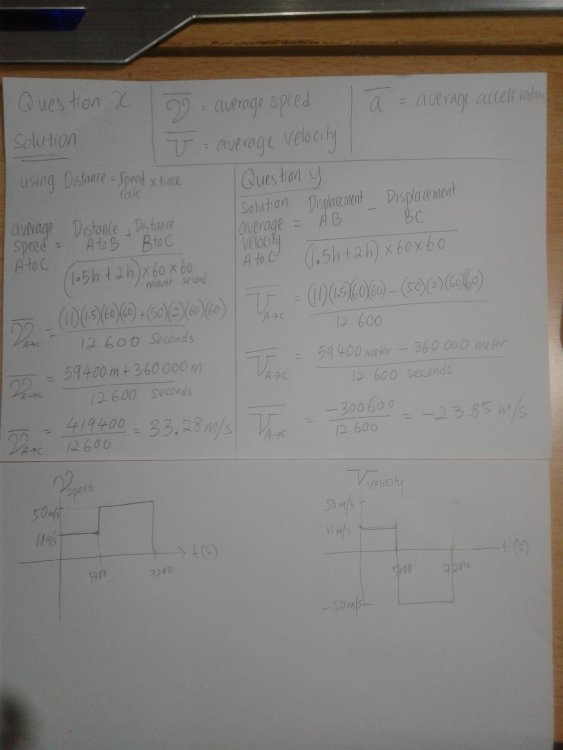 Question x
Solution
𝓋̅ = average speed
v̅ = average velocity
a̅ = average acceleration
using Distance = speed x time
rate
average speed A to C = Distance A to B + Distance B to C / (1.5h + 2h) x 60 x 60
minute second
𝓋̅ A→C = (11)(1.5)(60)(60) + (50)(2)(60)(60) / 12600 seconds
𝓋̅ A→C = 59400m + 360000m / 12600 seconds
𝓋̅ A→C = 419400 / 12600 = 33.28 m/s
Question y
Solution
average velocity A to C = Displacement AB − Displacement BC / (1.5h + 2h) x 60 x 60
v̅ A→C = (11)(1.5)(60)(60) − (50)(2)(60)(60) / 12 600
v̅ A→C = 59400 meter − 360 000 meter / 12 600 seconds
v̅ A→C = −300600 / 12600 = −23.85 m/s
𝓋 speed
50 m/s
11 m/s
5400
7200
t(s)
v̅ velocity
50 m/s
11 m/s
5400
7200
t(s)
−50 m/s